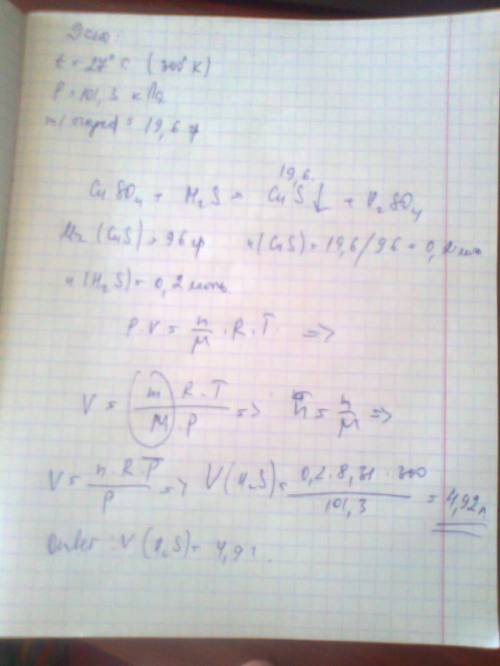 Дано:
t = 27° C (300° K)
P = 101,3 кПа
m(      ) = 19,6 гр
19,6
CuSO₄ + H₂S = CuS↓ + H₂SO₄
Mr (CuS) = 96 гр n(CuS) = 19,6/96 = 0,2 моль
n(H₂S) = 0,2 моль
P·V = m/M · R·T =>
V = m·R·T / M·P => n = m/M =>
V = n·R·T / P => V(H₂S) = 0,2·8,31·300 / 101,3 = 4,92 л
Ответ: V(H₂S) = 4,92